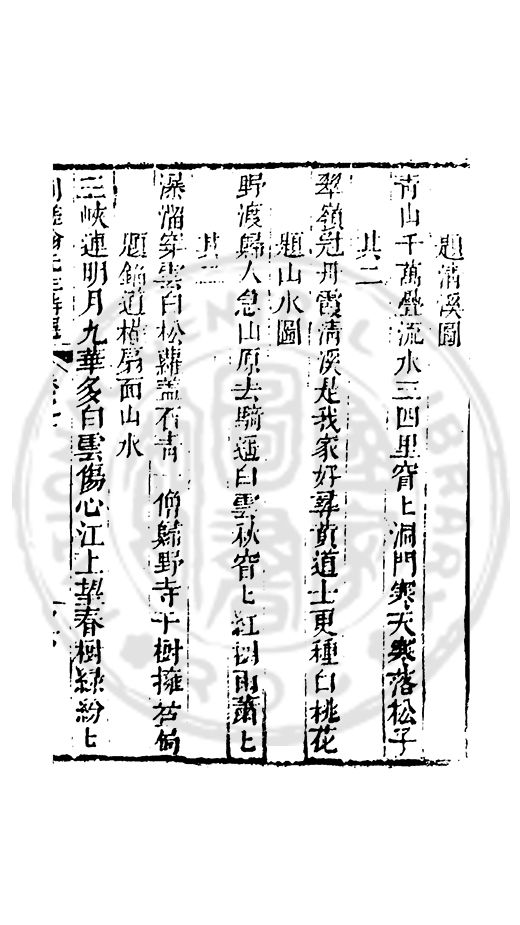 題清溪圖
青山千萬疊流水三四里窅匕洞門寒天寒落松子
其二
翠嶺冠丹霞清溪是我家好尋黃道士更種白桃花
題山水圖
野渡歸人急山原去騎遥白雲秋窅匕紅樹雨蕭匕
其二
瀑溜穿雲白松蘿蓋石青一僧歸野寺千樹擁茅
題道扇面山水
三峽連明月九華多白雲傷心江上望春樹綠紛匕